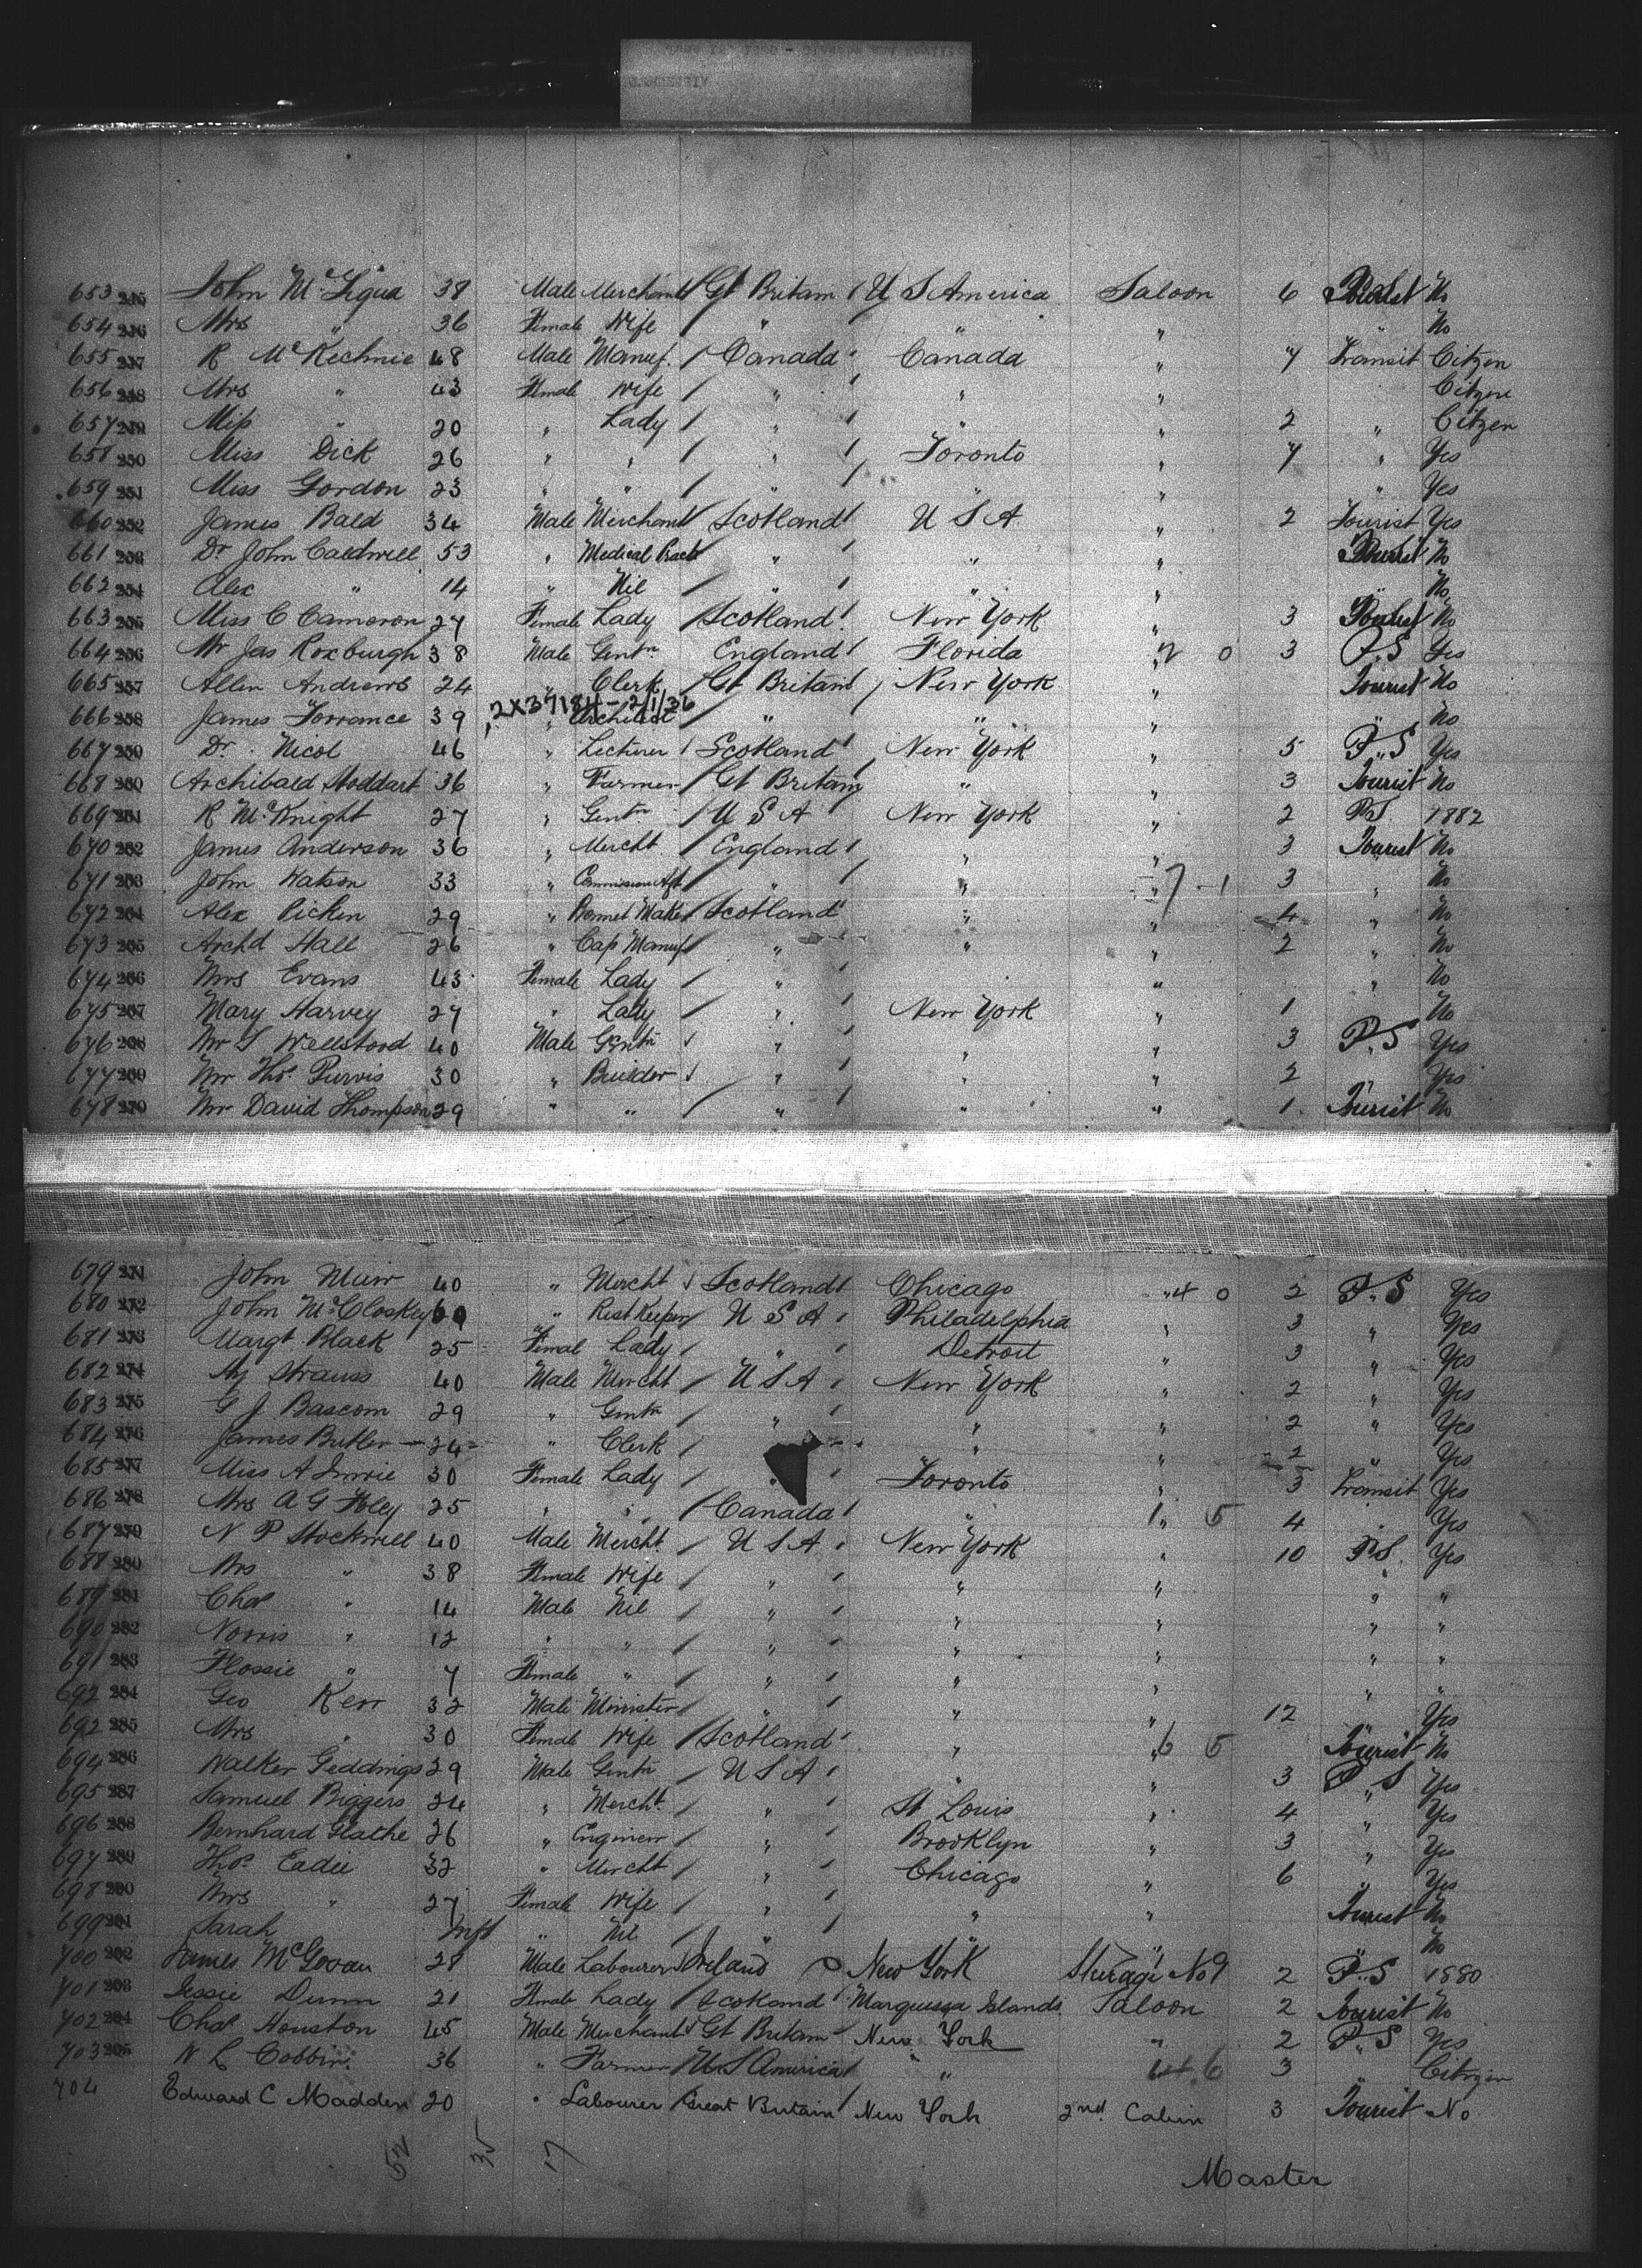 653 245 John McLigua 38 Male Merchant / Gt Britain / U S America Saloon 6 Tourist No
654 246 Mrs " 36 Female Wife / " " " " No
655 247 R McKechnie 48 Male Manuf. / Canada " Canada " 7 Transit Citizen
656 248 Mrs " 43 Female Wife / " / " " Citizen
657 249 Miss " 20 " Lady / " / " " 2 " Citizen
658 250 Miss Dick 26 " " / " / Toronto " 7 " Yes
659 251 Miss Gordon 23 " " / " / " " " Yes
660 252 James Bald 34 Male Merchant Scotland / U S A " 2 Tourist Yes
661 253 Dr John Caldwell 53 " Medical Pract " / " " Tourist No
662 254 Alex " 14 " Nil / " / " " " No
663 255 Miss C Cameron 27 Female Lady / Scotland / New York " 3 Tourist No
664 256 Mr Jas Roxburgh 38 Male Gentn England / Florida " 2 0 3 P.S Yes
665 257 Allen Andrews 24 " Clerk / Gt Britain / New York " Tourist No
2X37184 - 2/1/36
666 258 James Torrance 39 " Architect / " " " " No
667 259 Dr. Nicol 46 " Lecturer / Scotland / New York " 5 P.S Yes
668 260 Archibald Stoddart 36 " Farmer / Gt Britain / " " 3 Tourist No
669 261 R McKnight 27 " Gentn / U S A New York " 2 P.S. 1882
670 262 James Anderson 36 " Mercht / England / " " 3 Tourist No
671 263 John Watson 33 " Commission Agt / " / " " 7 - 1 3 " No
672 264 Alex Picken 29 " Bonnet Maker / Scotland / " " 4 " No
673 265 Archd Hall 26 " Cap Manuf / " " " 2 " No
674 266 Mrs Evans 43 Female Lady / " / " " No
675 267 Mary Harvey 27 " Lady / " / New York " 1 No
676 268 Mr T Wellstood 40 Male Gentn / " / " " 3 P.S Yes
677 269 Mr Thos Purvis 30 " Builder / " / " " 2 " Yes
678 270 Mr David Thompson 29 " " / " / " " 1 Tourist No
679 271 John Muir 40 " Mercht / Scotland / Chicago " 4 0 2 P.S Yes
680 272 John McCloskey 60 " Rest Keeper / U S A / Philadelphia " 3 " Yes
681 273 Margt Black 25 Femal Lady / " / Detroit " 3 " Yes
682 274 Strauss 40 Male Mercht / U S A / New York " 2 " Yes
683 275 G J Bascom 29 " Gentn / " / " " 2 " Yes
684 276 James Butler 24 " Clerk / " " 2 " Yes
685 277 Miss A Imrie 30 Female Lady / " Toronto " 3 Transit Yes
686 278 Mrs A G Foley 25 " " / Canada / " 1 " 5 4 " Yes
687 279 N P Stockwell 40 Male Mercht / U S A / New York " 10 P.S. Yes
688 280 Mrs " 38 Female Wife / " / " " " "
689 281 Chas " 14 Male Nil / " / " " " "
690 282 Norris " 12 " " / " / " " " "
691 283 Flossie " 7 Female " / " / " " " "
692 284 Geo Kerr 32 Male Minister / " " " 12 Yes
692 285 Mrs " 30 Female Wife / Scotland / " " 6 5 Tourist No
694 286 Walker Giddings 29 Male Gentn / U S A / " " 3 P.S Yes
695 287 Samuel Biggers 24 " Mercht / " / St Louis " 4 " Yes
696 288 Bernhard Glathe 26 " Engineer / " / Brooklyn " 3 " Yes
697 289 Thos Eadie 32 " Mercht / " / Chicago " 6 " Yes
698 290 Mrs " 27 Female Wife / " / " " Tourist No
699 291 Sarah Inft " Nil / " / " No
700 292 James McGovan 28 Male Labourer Ireland New York Steerage No 9 2 P.S 1880
701 293 Jessie Dunn 21 Female Lady / Scotland / Marquesa Islands Saloon 2 Tourist No
702 294 Chas Houston 45 Male Merchant / Gt Britain New York " 2 P.S Yes
703 295 N L Cobbin 36 " Farmer / U S America / " 6 3 " Citizen
704 Edward C Madden 20 " Labourer Great Britain / New York 2nd Cabin 3 Tourist No
Master